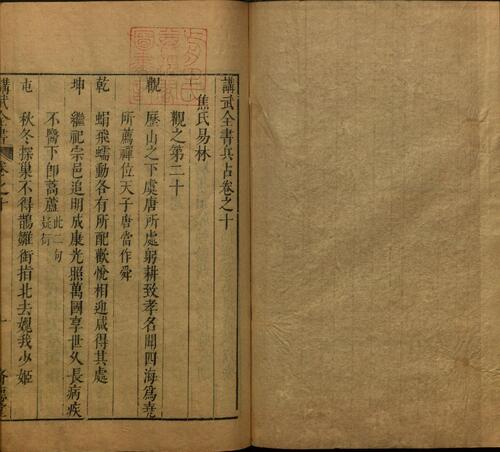 講武全書兵占卷之十
焦氏易林
觀之第二十
觀 歷山之下虞唐所處躬耕致孝名聞四海爲堯
所薦禪位天子唐當作舜
乾 蝟飛蠕動各有所配歡悅相迎咸得其處
坤 繼祀宗邑追明成康光照萬國享世久長病疾
不醫下卽蒿蘆此二句疑衍
屯 秋冬探巢不得鵲雛銜指北去媿我少姬
講武全書 卷之十 一